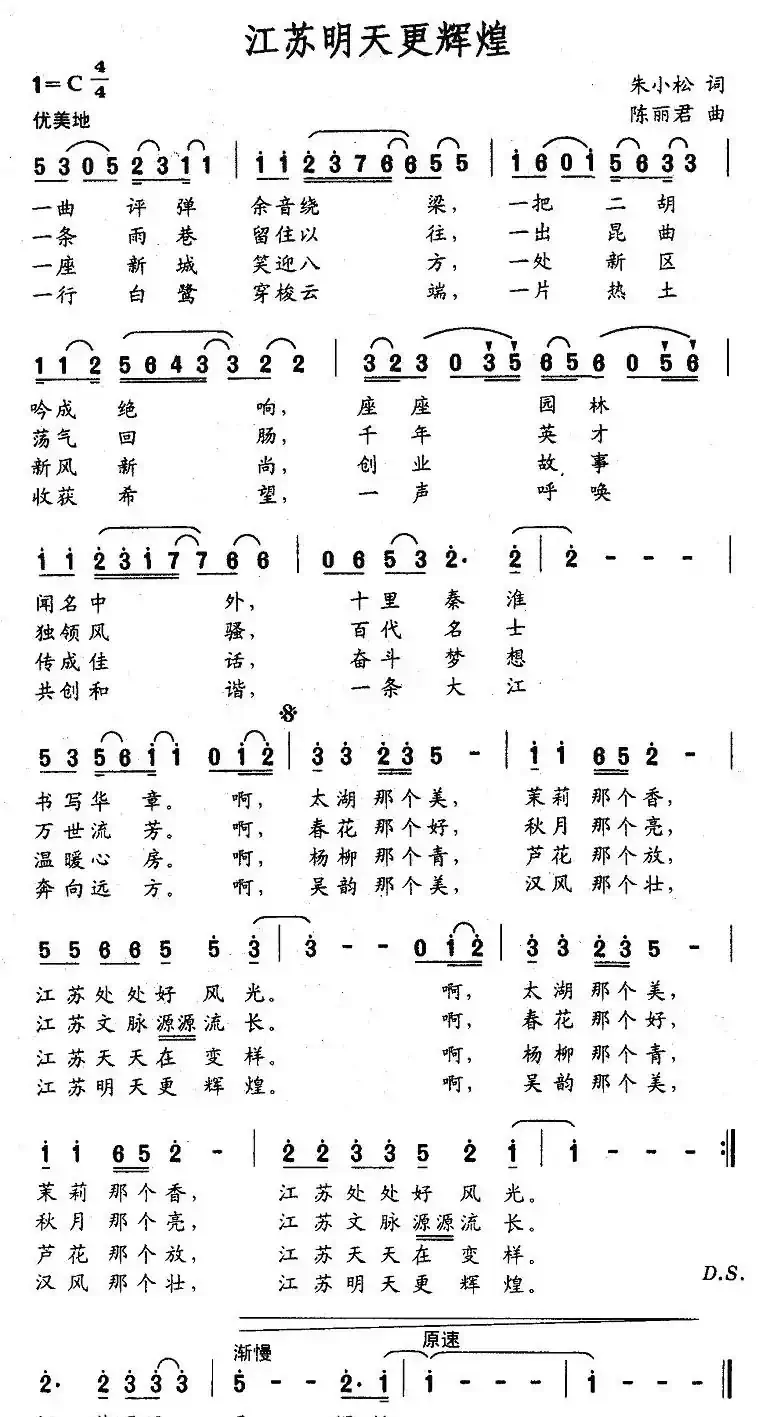 江苏明天更辉煌
1=C 4/4
朱小松 词
优美地
陈丽君 曲
5 3 0 5 2 3 1 1 | 1 1 2 3 7 6 6 5 5 | 1 6 0 1 5 6 3 3 |
一曲 评弹 余音绕 梁，一把 二胡
一条 雨巷 留住以 往，一出 昆曲
一座 新城 笑迎八 方，一处 新区
一行 白鹭 穿梭云 端，一片 热土
1 1 2 5 6 4 3 3 2 2 | 3 2 3 0 3 5 6 5 6 0 5 6 |
吟成 绝 响，座 座 园 林
荡气 回 肠，千 年 英 才
新风 新 尚，创 业 故 事
收获 希 望，一 声 呼 唤
1 1 2 3 1 7 7 6 6 | 0 6 5 3 2· 2 | 2 - - - |
闻名中 外，十里 秦 淮
独领风 骚，百代 名 士
传成佳 话，奋斗 梦 想
共创和 谐，一条 大 江
5 3 5 6 1 1 0 1 2 | 3 3 2 3 5 - | 1 1 6 5 2 - |
书写华 章。啊，太湖 那个美，茉莉 那个香，
万世流 芳。啊，春花 那个好，秋月 那个亮，
温暖心 房。啊，杨柳 那个青，芦花 那个放，
奔向远 方。啊，吴韵 那个美，汉风 那个壮，
5 5 6 6 5 5 3 | 3 - - 0 1 2 | 3 3 2 3 5 - |
江苏处处好 风 光。啊，太湖 那个美，
江苏文脉源源流 长。啊，春花 那个好，
江苏天天在 变 样。啊，杨柳 那个青，
江苏明天更 辉 煌。啊，吴韵 那个美，
1 1 6 5 2 - | 2 2 3 3 5 2 1 | 1 - - - :||
茉莉 那个香，江苏处处好 风 光。
秋月 那个亮，江苏文脉源源流 长。
芦花 那个放，江苏天天在 变 样。
汉风 那个壮，江苏明天更 辉 煌。
D.S.
渐慢 原速
2· 2 3 3 3 | 5 - - 2· 1 | 1 - - - | 1 - - - ||